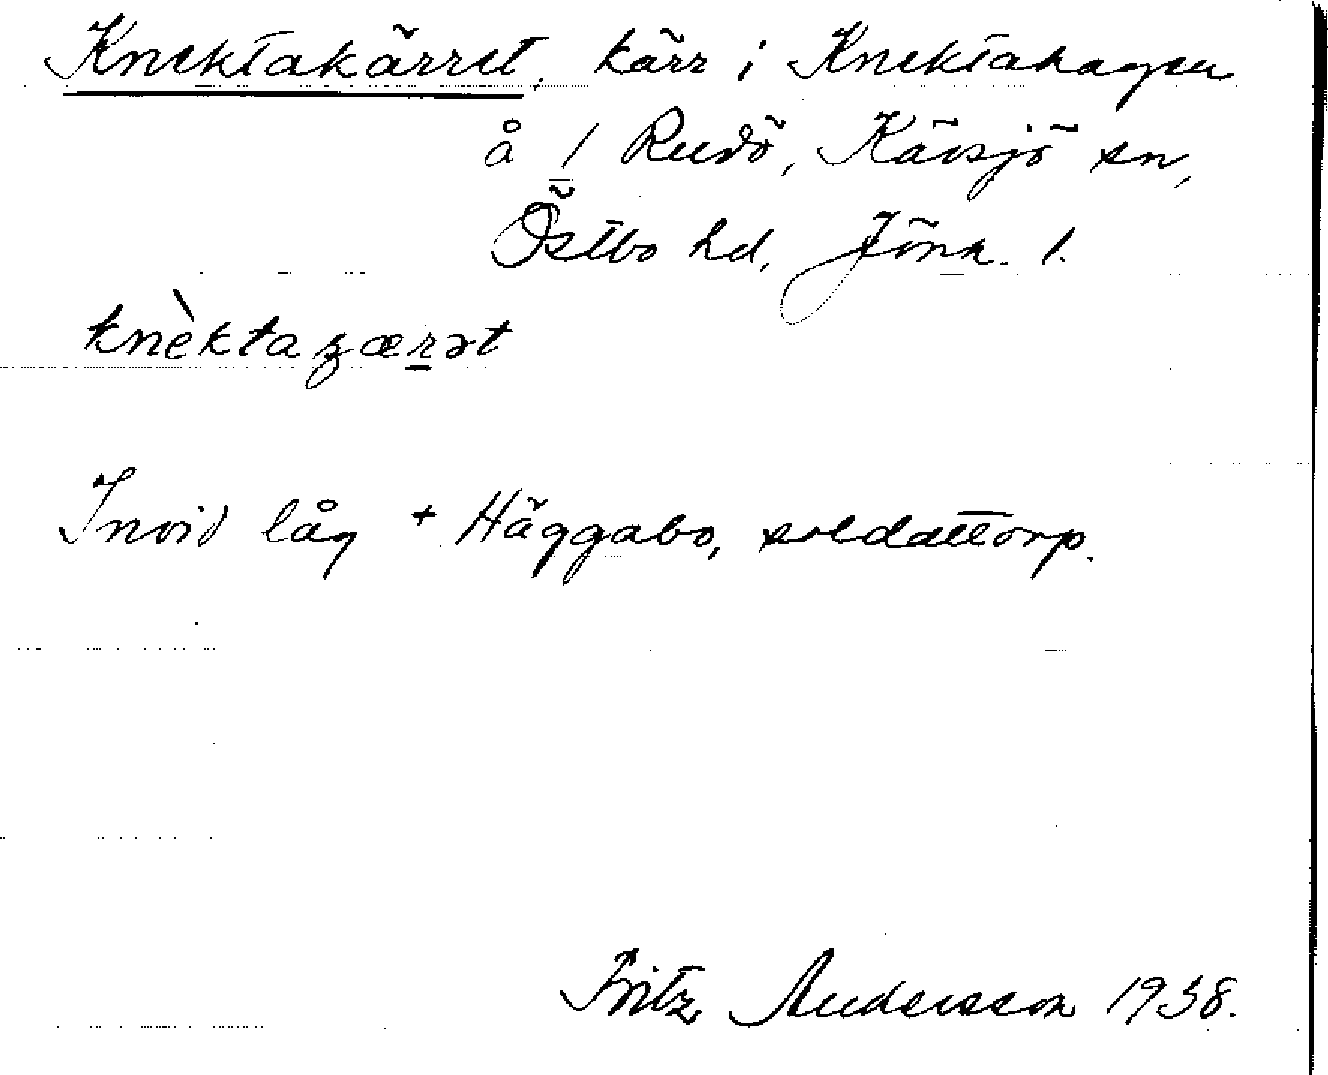 Knektakärret, kärr i Knektahagen
å 1 Rudö, Kävsjö sn,
Östbo hd, Jönk. l.
knèktaʒærət
Invid låg + Häggabo, soldattorp.
Fritz Andersson 1938.